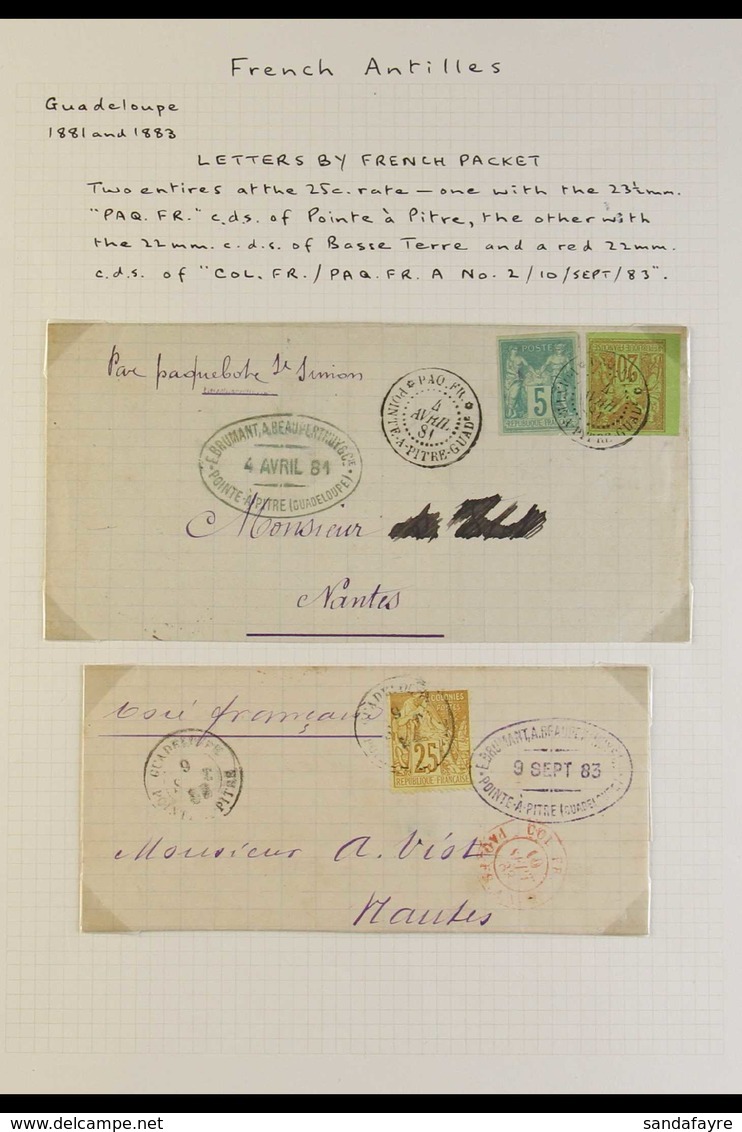 French Antilles
Guadeloupe
1881 and 1883
LETTERS BY FRENCH PACKET
Two entires at the 25c. rate — one with the 23½mm.
"PAQ. FR." c.d.s. of Pointe à Pitre, the other with
the 22 mm. c.d.s. of Basse Terre and a red 22mm.
c.d.s. of "COL. FR./PAQ. FR. A No. 2/10/SEPT/83".
Par paquebote St Simon
PAQ. FR.
4
AVRIL
81
POINTE-A-PITRE-GUADE
POSTE
5
RÉPUBLIQUE FRANÇAISE
20
E. BRUMANT, A. BEAUPERTHUY & Cie
4 AVRIL 81
POINTE-À-PITRE (GUADELOUPE)
Monsieur
Nantes
Voie française
GUADELOUPE
9
83
POINTE-A-PITRE
COLONIES
POSTES
25
REPUBLIQUE FRANÇAISE
E. BRUMANT, A. BEAUPERTHUY
9 SEPT 83
POINTE-À-PITRE (GUADELOUPE)
COL. FR.
10
SEPT
83
PAQ. FR.
Monsieur A. Viot
Nantes
www.delcampe.net
sandafayre